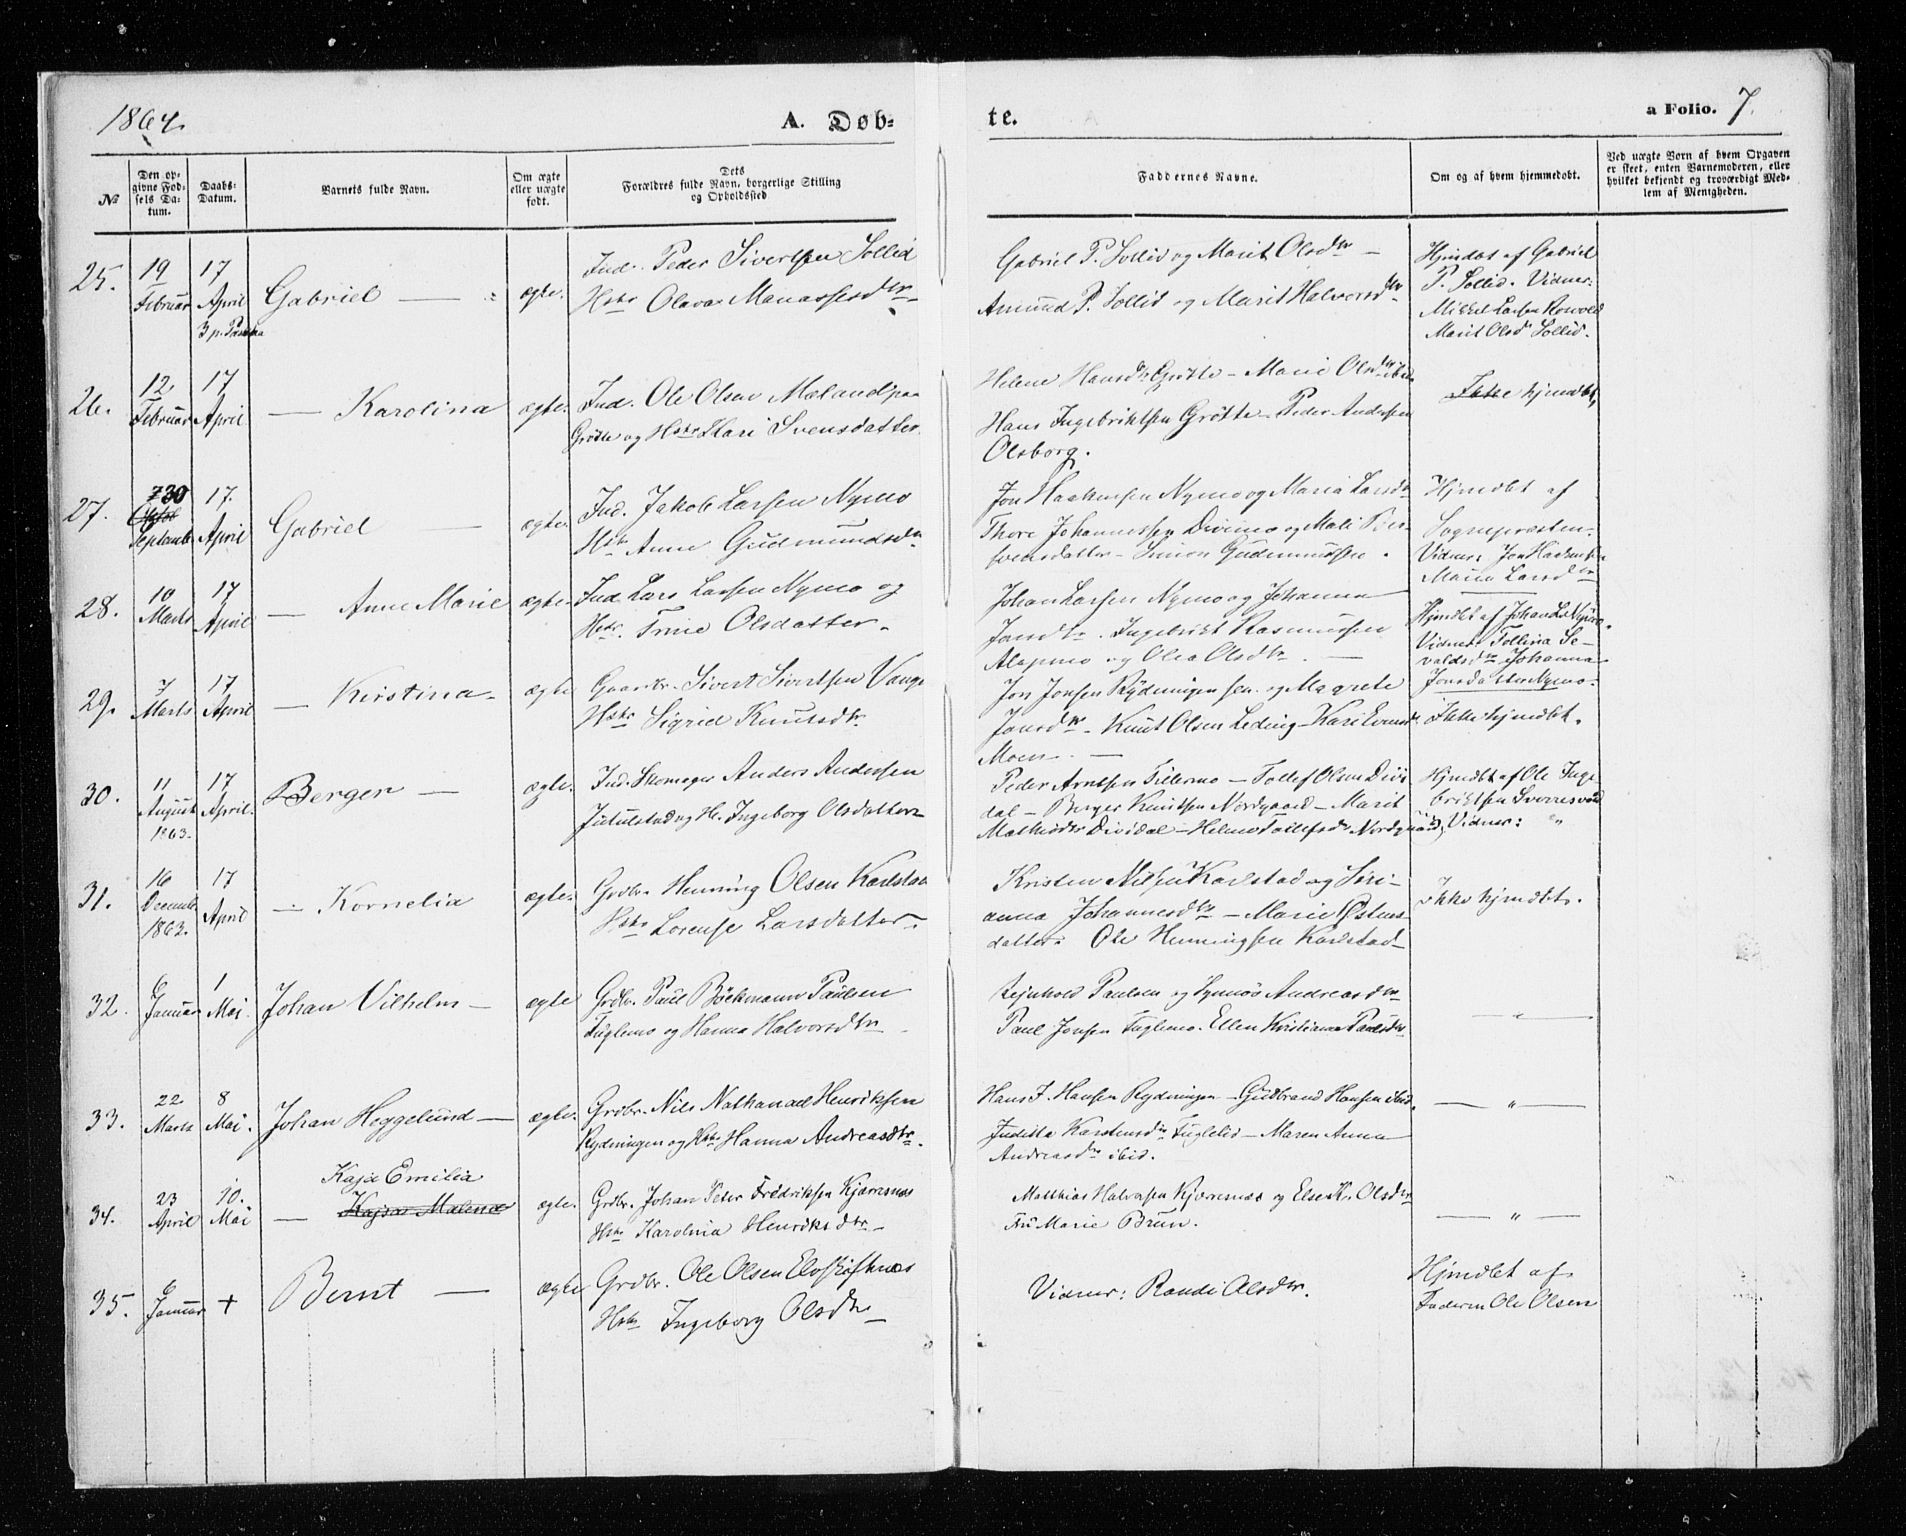 1864.
A. Døb-
te.
a Folio. 7.
№
Den op-
givne Fød-
sels Da-
tum.
Daabs-
Datum.
Barnets fulde Navn.
Om ægte
eller uægte
født.
Dets
Forældres fulde Navn, borgerlige Stilling
og Opholdssted
Faddernes Navne.
Om og af hvem hjemmedøbt.
Ved uægte Børn af hvem Opgaven
er skeet, enten Barnemoderen, eller
hvilket bekjendt og troværdigt Med-
lem af Menigheden.
25.
19
Februar
17
April
Gabriel
ægte.
Ind. Peder Sivertsen Sollid
Hstr Olava Manassesdtr
Gabriel P. Sollid og Marit Olsdtr
Amund P. Sollid og Marit Halvorsdtr
Hjmdbt af Gabriel
P. Sollid. Vidner:
Mikkel Larsen Rosvold
Marit Olsdtr Sollid.
26.
12
Februar
17
April
Karolina
ægte.
Ind. Ole Olsen Mælandpaa
Grøtte og Hstr Kari Svensdatter
Helene Hansdtr Grøtte – Marie Olsdtr ibid
Hans Ingebriktsen Grøtte – Peder Andersen
Olsborg.
Ikke hjmdbt,
27.
30
Septemb
17.
April
Gabriel
ægte.
Ind. Jakob Larsen Nymo
Hstr Anne Gudmundsdtr
Jon Haakensen Nymo og Maria Larsdtr
Thore Johannessen Divimo og Mali Tor-
svensdatter – Simon Gudmundsen.
Hjmdbt af
Sognepresten.
Vidner: Jon Haakensen
Maria Larsdtr
28.
10
Marts
17
April
Anne Marie
ægte.
Ind Lars Larsen Nymo og
Hstr. Trine Olsdatter.
Johan Larsen Nymo og Johanna
Jonsdtr. Ingebrikt Rasmussen
Alapmo og Olea Olsdtr.
Hjmdbt af Johan L. Nymo.
Vidner Tollina Se-
valdsdtr Johanna
Jonsdatter Nymo.
29.
7
Marts
17
April
Kristina
ægte
Gaardbr. Sivert Sivertsen Vange
Hstr Sigrid Knutsdtr.
Jon Jonsen Rydningen sen. og Magrete
Jonsdtr – Knut Olsen Leding – Kari Evensd.
Moen.
Ikke hjmdbt.
30.
11
August
1863.
17
April.
Berger
ægte.
Ind. Skomager Anders Andersen
Jutulstad og H. Ingeborg Olsdatter
Peder Arntsen Tillermo – Tollef Olsen Divi
dal – Berger Knutsen Nordgaard – Marit
Mathisdtr Dividal – Helene Tollefsdtr Nordgaard,
Hjmdbt af Ole Inge
briktsen Sverresvold
Vidner: "
31.
16
Decemb
1863.
17
April
Kornelia
ægte.
Grdbr. Henning Olsen Karlstad
Hstr Lorense Larsdatter.
Kristen Nilsen Karlstad og Siri-
anna Johannesdtr – Marie Østens-
datter. Ole Henningsen Karlstad
Ikke hjmdbt.
32.
6
Januar
1
Mai.
Johan Vilhelm
ægte
Grdbr. Paul Böckmann Paulsen
Fuglemo og Hanna Halvorsdtr
Rejnhold Paulsen og Synnöv Andreasdtr
Paul Jonsen Fuglemo. Ellen Kristianna Paulsdtr
— " —
33.
22
Marts
8
Mai.
Johan Heggelund
ægte.
Grdbr. Nils Nathanael Henriksen
Rydningen og Hstr Hanna Andreasdtr.
Hans J. Hansen Rydningen – Gudbrand Hansen ibid.
Juditta Karstensdtr Fuglelid – Maren Anna
Andreasdtr ibid.
— " —
34.
23
April
10.
Mai
Kaja Emilia
Kajsa Malena
ægte.
Grdbr. Johan Peter Fredriksen Kjærresnæs
Hstr Karolina Henriksdtr
Matthias Halvorsen Kjærresnæs og Else K. Olsdtr
Fru Marie Brun.
— " —
35.
6
Januar
+
Bernt
ægte
Grdbr. Ole Olsen Elvskiftnæs
Hstr Ingeborg Olsdtr
Vidner: Randi Olsdtr.
Hjmdbt af
Faderen Ole Olsen